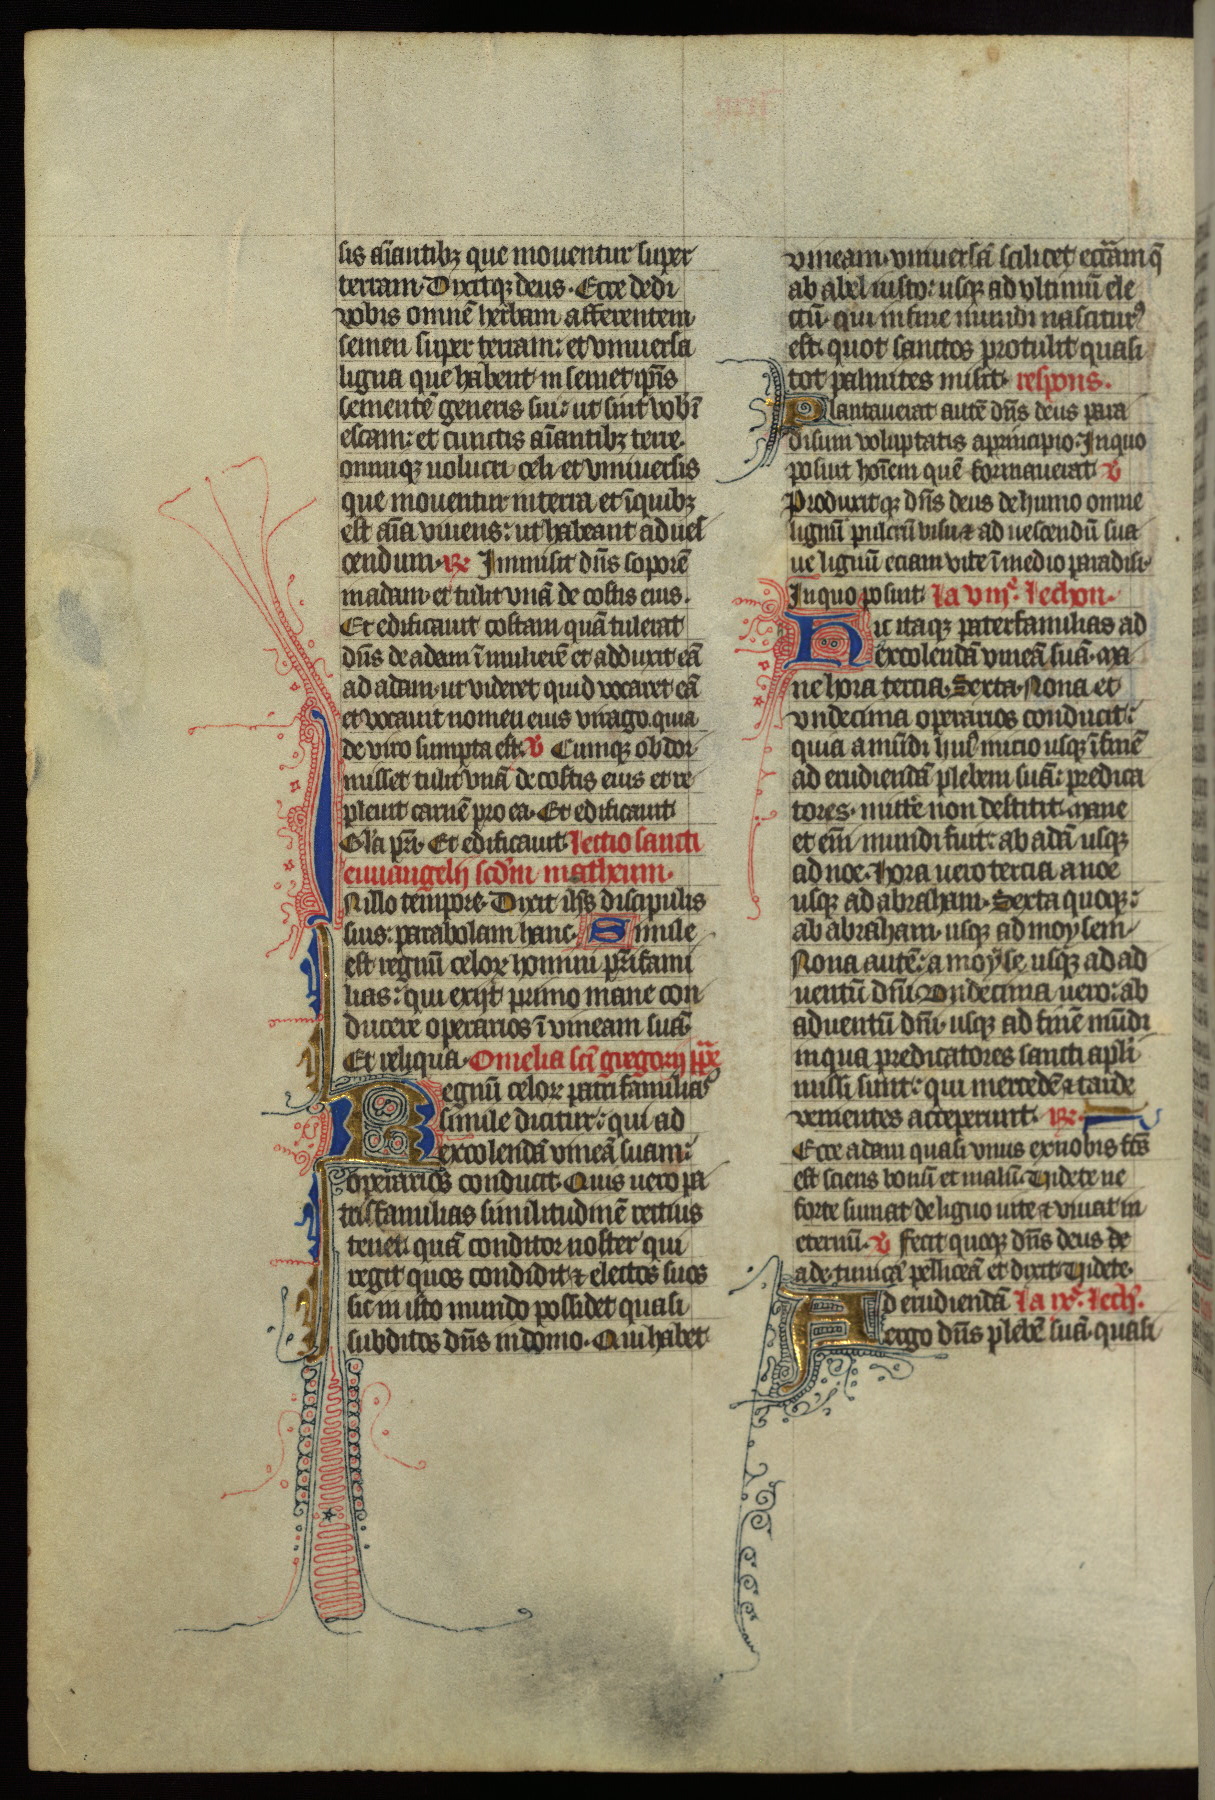 sis aĩantibꝫ que mouentur super
terram· Dixitqꝫ deus· Ecce dedi
vobis omnẽ herbam afferentem
semen super terram: et vniuersa
ligna que habent in semet ip̃is
sementẽ generis sui: ut sint vob̃
escam: et cunctis aĩantibꝫ terre·
omniqꝫ uolucri celi et vniuersis
que mouentur in terra et ĩ quibꝫ
est aĩa viuens: ut habeant ad ues
cendum· R̃ Immisit dñs soporẽ
in adam· et tulit vnã de costis eius·
Et edificauit costam quã tulerat
dñs de adam ĩ mulierẽ et adduxit eã
ad adam· ut videret quid vocaret eã
et vocauit nomen eius virago· quia
de viro sumpta est· V Cumqꝫ obdor
misset tulit vnã de costis eius et re
pleuit carnẽ pro ea· Et edificauit
Gl̃a pr̃i· Et edificauit· Lectio sancti
euuangelij scd̃m matheum·
In illo tempore· Dixit ih̃s discipulis
suis: parabolam hanc· Simile
est regnũ celoꝝ homini pr̃ifami
lias: qui exijt primo mane con
ducere operarios ĩ vineam suã·
Et reliqua· Omelia sc̃i gregorij pp̃e
Regnũ celoꝝ patrifamilias
simile dicitur: qui ad
excolendã vineã suam:
operarios conducit· Quis uero pa
trisfamilias similitudinẽ rectius
tenet: quã conditor noster qui
regit quos condidit ⁊ electos suos
sic in isto mundo possidet quasi
subditos dñs in domo· Qui habet
vineam· vniuersã scilicet eccl̃iam q̃
ab abel iusto: usqꝫ ad vltimũ ele
ctũ· qui in fine mundi nasciturꝰ
est· quot sanctos protulit quasi
tot palmites misit· respons·
Plantauerat autẽ dñs deus para
disum voluptatis a principio: In quo
posuit hoĩem quẽ formauerat· V
Produxitqꝫ dñs deus de humo omne
lignũ pulcrũ visu ⁊ ad uescendũ sua
ue lignũ eciam vite ĩ medio paradisi·
In quo posuit· La viijͤ· lechon·
Hic itaqꝫ paterfamilias ad
excolendã vineã suã· ma
ne hora tercia· Sexta· Nona et
vndecima operarios conducit:
quia a mũdi huiꝰ inicio usqꝫ ĩ finẽ
ad erudiendã plebem suã: predica
tores· mitte non destitit· mane
et eni͂ mundi fuit: ab adã usqꝫ
ad noe· Hora uero tercia a noe
usqꝫ ad abraham· Sexta quoqꝫ:
ab abraham· usqꝫ ad moysem
Nona autẽ: a moyse usqꝫ ad ad
uentũ dñi· Vndecima uero: ab
aduentũ dñi· usqꝫ ad finẽ mũdi
in qua predicatores sancti apl̃i
missi sunt: qui mercedẽ ⁊ tarde
venientes acceperunt· R̃·
Ecce adam quasi vnus ex nobis fc̃s
est sciens bonũ et malũ· Videte ne
forte sumat de ligno uite ⁊ viuat in
eternũ· V Fecit quoqꝫ dñs deus de
ade· tunicã pelliceã et dixit· Videte·
Ad erudiendã La ixͤ· lech̃·
ergo dñs plebẽ suã· quasi